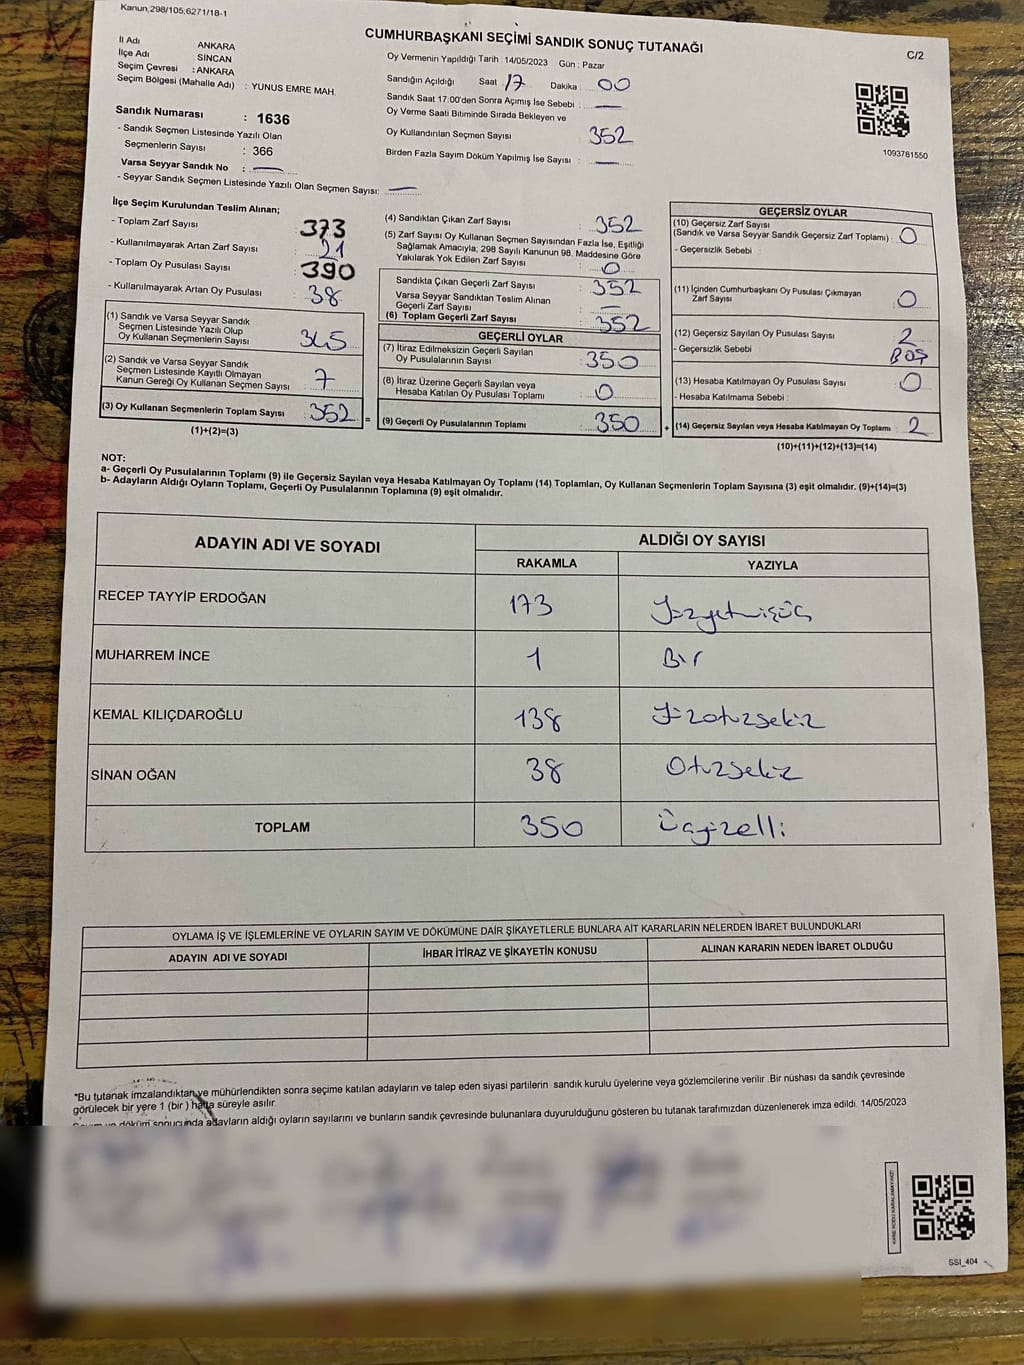 Kanun,298/105;6271/18-1
CUMHURBAŞKANI SEÇİMİ SANDIK SONUÇ TUTANAĞI
C/2
İl Adı ANKARA
İlçe Adı SİNCAN
Seçim Çevresi : ANKARA
Seçim Bölgesi (Mahalle Adı) : YUNUS EMRE MAH.
Oy Vermenin Yapıldığı Tarih : 14/05/2023 Gün : Pazar
Sandığın Açıldığı Saat 17 Dakika 00
Sandık Saat 17:00'den Sonra Açımış İse Sebebi : —
Oy Verme Saati Bitiminde Sırada Bekleyen ve
Oy Kullandırılan Seçmen Sayısı 352
Birden Fazla Sayım Döküm Yapılmış İse Sayısı : —
1093781550
Sandık Numarası : 1636
- Sandık Seçmen Listesinde Yazılı Olan
Seçmenlerin Sayısı : 366
Varsa Seyyar Sandık No : —
- Seyyar Sandık Seçmen Listesinde Yazılı Olan Seçmen Sayısı: —
İlçe Seçim Kurulundan Teslim Alınan;
- Toplam Zarf Sayısı : 373
- Kullanılmayarak Artan Zarf Sayısı : 21
- Toplam Oy Pusulası Sayısı : 390
- Kullanılmayarak Artan Oy Pusulası : 38
(1) Sandık ve Varsa Seyyar Sandık
Seçmen Listesinde Yazılı Olup
Oy Kullanan Seçmenlerin Sayısı : 345
(2) Sandık ve Varsa Seyyar Sandık
Seçmen Listesinde Kayıtlı Olmayan
Kanun Gereği Oy Kullanan Seçmen Sayısı : 7
(3) Oy Kullanan Seçmenlerin Toplam Sayısı : 352 =
(1)+(2)=(3)
(4) Sandıktan Çıkan Zarf Sayısı : 352
(5) Zarf Sayısı Oy Kullanan Seçmen Sayısından Fazla İse, Eşitliği
Sağlamak Amacıyla; 298 Sayılı Kanunun 98. Maddesine Göre
Yakılarak Yok Edilen Zarf Sayısı : 0
Sandıkta Çıkan Geçerli Zarf Sayısı : 352
Varsa Seyyar Sandıktan Teslim Alınan
Geçerli Zarf Sayısı : —
(6) Toplam Geçerli Zarf Sayısı : 352
GEÇERLİ OYLAR
(7) İtiraz Edilmeksizin Geçerli Sayılan
Oy Pusulalarının Sayısı : 350
(8) İtiraz Üzerine Geçerli Sayılan veya
Hesaba Katılan Oy Pusulası Toplamı : 0
(9) Geçerli Oy Pusulalarının Toplamı : 350 +
GEÇERSİZ OYLAR
(10) Geçersiz Zarf Sayısı
(Sandık ve Varsa Seyyar Sandık Geçersiz Zarf Toplamı) : 0
- Geçersizlik Sebebi
(11) İçinden Cumhurbaşkanı Oy Pusulası Çıkmayan
Zarf Sayısı : 0
(12) Geçersiz Sayılan Oy Pusulası Sayısı : 2
- Geçersizlik Sebebi : BOŞ
(13) Hesaba Katılmayan Oy Pusulası Sayısı : 0
- Hesaba Katılmama Sebebi :
(14) Geçersiz Sayılan veya Hesaba Katılmayan Oy Toplamı : 2
(10)+(11)+(12)+(13)=(14)
NOT:
a- Geçerli Oy Pusulalarının Toplamı (9) ile Geçersiz Sayılan veya Hesaba Katılmayan Oy Toplamı (14) Toplamları, Oy Kullanan Seçmenlerin Toplam Sayısına (3) eşit olmalıdır. (9)+(14)=(3)
b- Adayların Aldığı Oyların Toplamı, Geçerli Oy Pusulalarının Toplamına (9) eşit olmalıdır.
ADAYIN ADI VE SOYADI ALDIĞI OY SAYISI
RAKAMLA YAZIYLA
RECEP TAYYİP ERDOĞAN 173 Yüzyetmişüç
MUHARREM İNCE 1 Bir
KEMAL KILIÇDAROĞLU 138 Yüzotuzsekiz
SİNAN OĞAN 38 Otuzsekiz
TOPLAM 350 Üçyüzelli
OYLAMA İŞ VE İŞLEMLERİNE VE OYLARIN SAYIM VE DÖKÜMÜNE DAİR ŞİKAYETLERLE BUNLARA AİT KARARLARIN NELERDEN İBARET BULUNDUKLARI
ADAYIN ADI VE SOYADI İHBAR İTİRAZ VE ŞİKAYETİN KONUSU ALINAN KARARIN NEDEN İBARET OLDUĞU
*Bu tutanak imzalandıktan ve mühürlendikten sonra seçime katılan adayların ve talep eden siyasi partilerin sandık kurulu üyelerine veya gözlemcilerine verilir .Bir nüshası da sandık çevresinde
görülecek bir yere 1 (bir ) hafta süreyle asılır.
Sayım ve döküm sonucunda adayların aldığı oyların sayılarını ve bunların sandık çevresinde bulunanlara duyurulduğunu gösteren bu tutanak tarafımızdan düzenlenerek imza edildi. 14/05/2023
KARE KODU KARALAMAYINIZ!
SSI_404